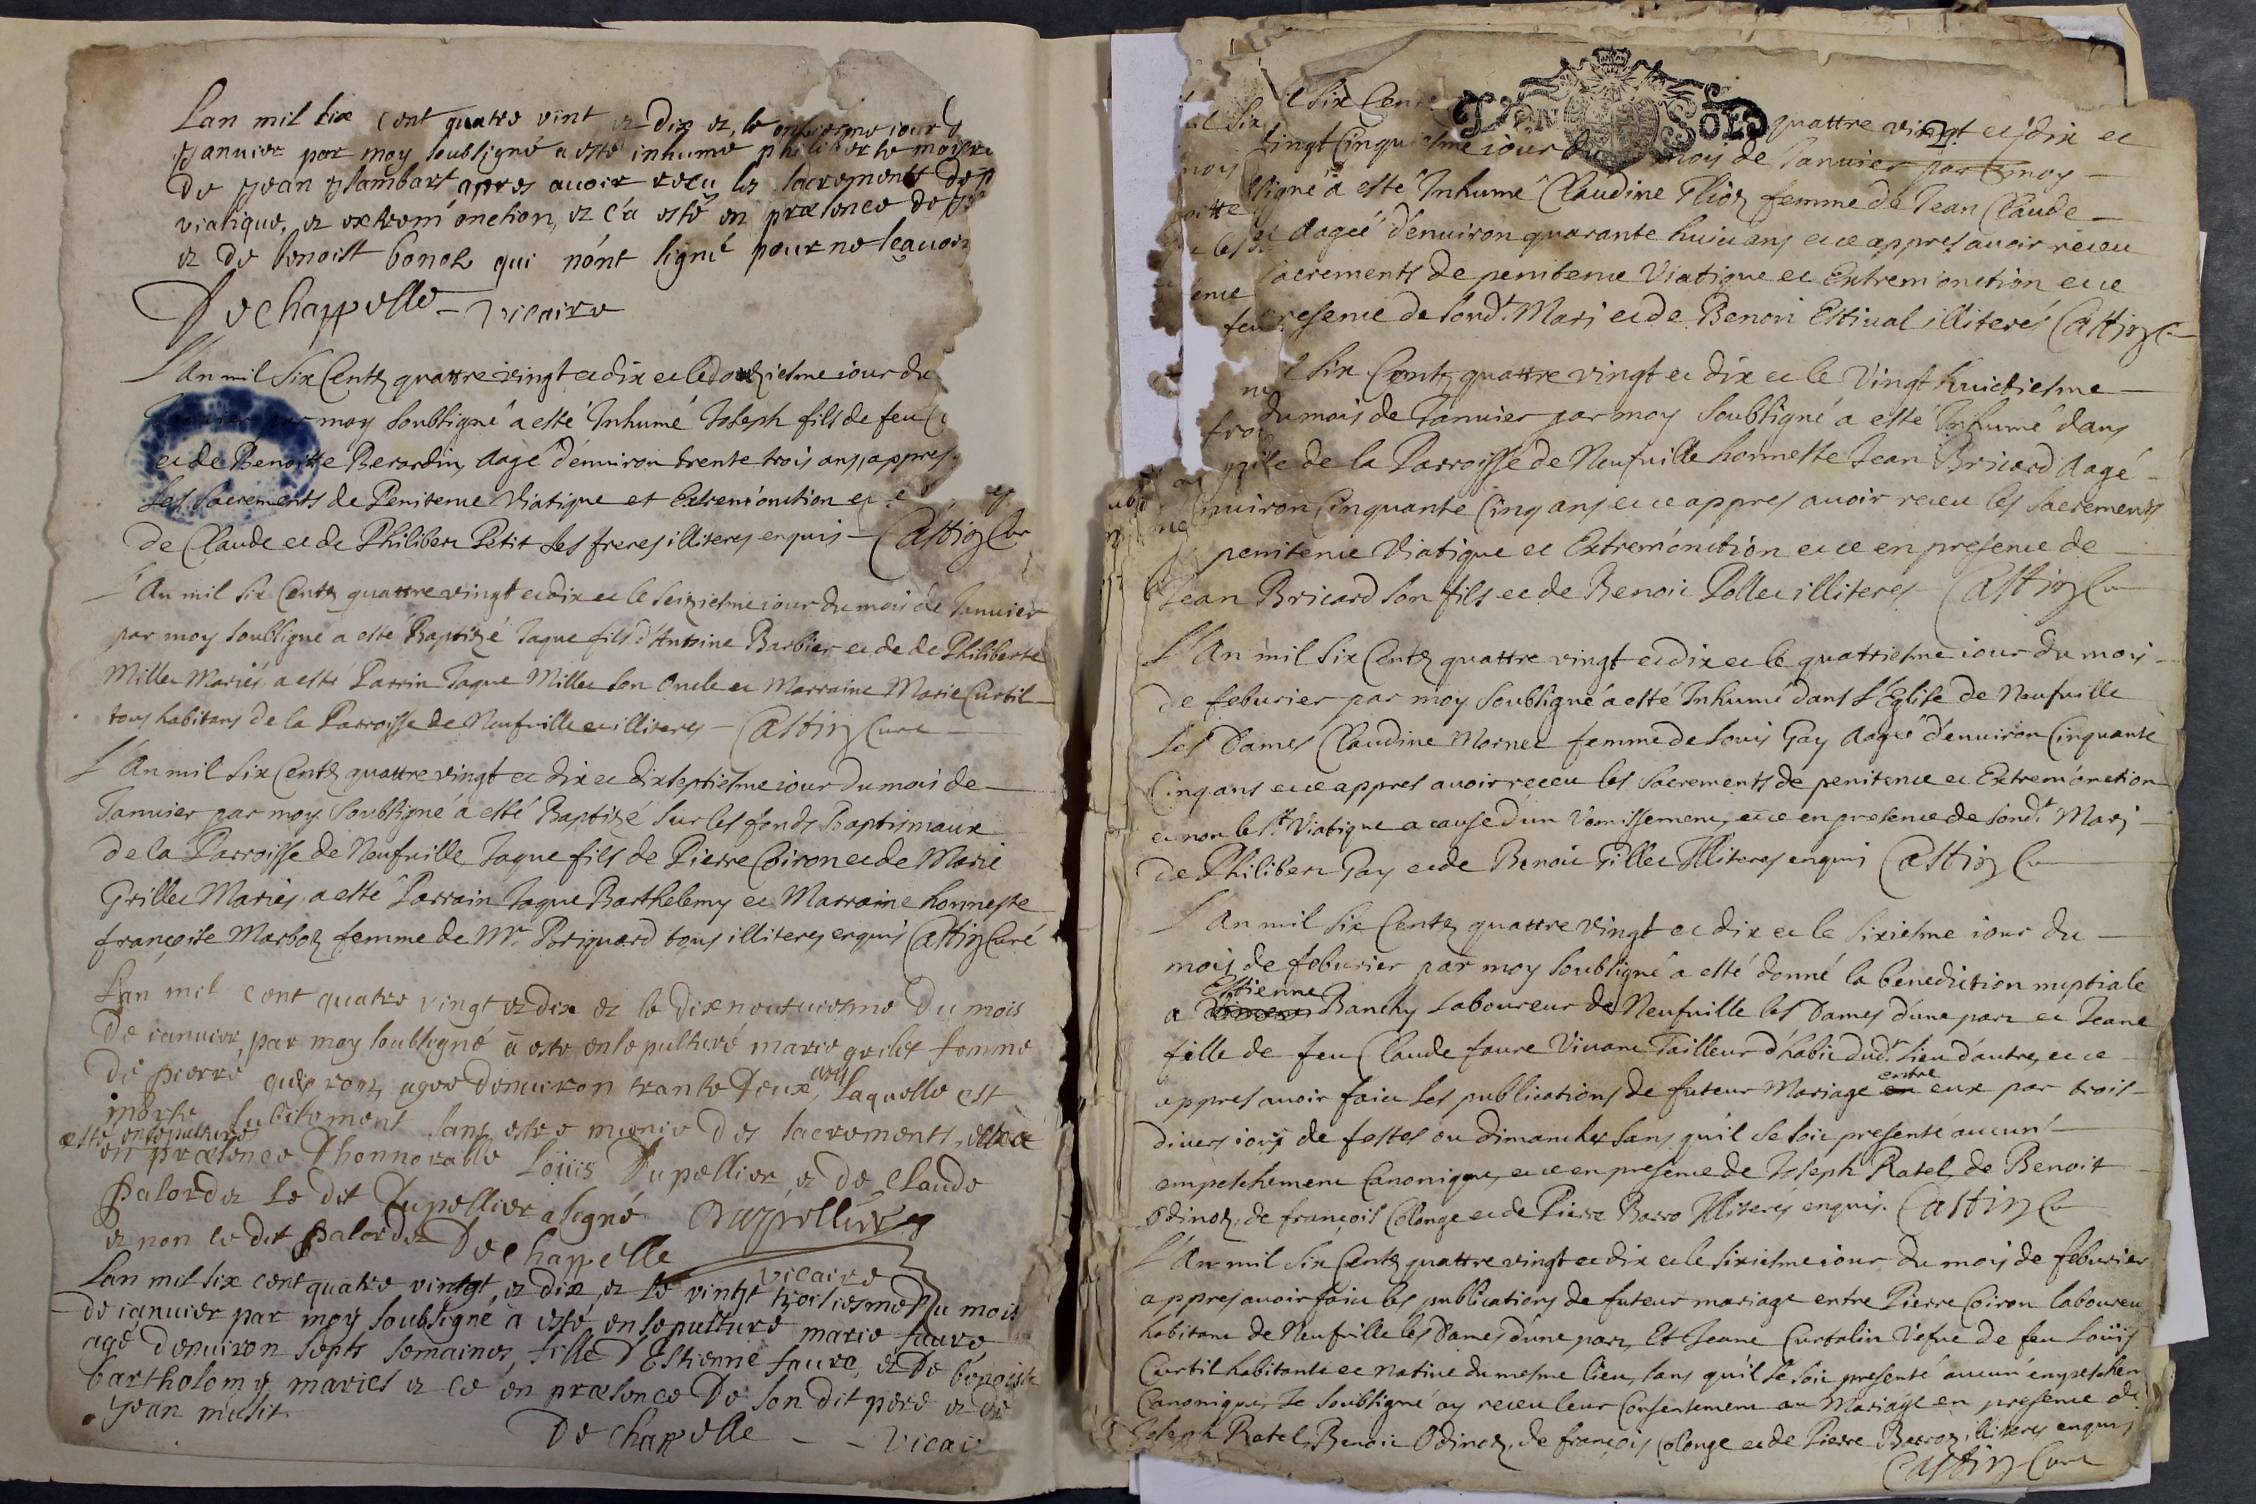 Lan mil six cent quatre vint et dix et, le onziesme iour d
Januier par moy soubsigné a esté inhumé philiberte
de Jean Jambart apres auoir reçu les sacrements de
viatique, et extrem'onction, et c'a esté en præsence de
et de benoist bonol qui n'ont signé pour ne sçauoir
Dechappelle – vicaire
L'An mil Six Centz quattre vingt et dix et le douziesme iour du
Januier par moy Soubsigné a esté Inhumé Joseph fils de feu
et de Benoitte Berardin, aagé d'enuiron trente trois ans, appres
les Sacrements de Penitence Viatique et Extrem'onction et
de Claude et de Philibert Petit ses freres illiteres enquis – Castin Cur
L'An mil Six Centz quattre vingt et dix et le Seiziesme iour du mois de Januier
par moy soubsigné a esté Baptizé Jaque fils d'Antoine Barbier et de de Philiberte
Millet Mariés, a esté Parrin Jaque Millet son Oncle et Marraine Marie Curtil
tous habitans de la Parroisse de Neufuille et illiteres – Castin Curé
L'An mil Six Centz quattre vingt et dix et dixseptiesme iour du mois de
Januier par moy Soubsigné a esté Baptizé Sur les fonds Baptismaux
de la Parroisse de Neufuille Jaque fils de Pierre Coiron et de Marie
Grillet Mariés, a esté Parrain Jaque Barthelemy et Marraine honneste
françoise Marboz femme de Mr. Periquard tous illiteres enquis Castin Curé
L'an mil cent quatre vingt et dix et le dixneufuiesme du mois
de ianuier, par moy soubsigné a esté ensepulturé marie grilet femme
de pierre agee denuiron trante deux ans, Laquelle est
morte subitement sans estre munie des sacrements, et a
esté ensepulturé
en præsence d'honnorable Loüis Dupellier et de claude
palordet Le dit Dupellier a signé Duppellier
et non le dit palordet Dechappelle
vicaire
Lan mil six cent quatre vintgt, et dix, et Le vintgt troisiesme du mois
de ianuier par moy soubsigné à esté ensepulturé marie faure
agé denuiron septs semaines, fille d'Estienne faure, et de benoiste
bartholomy mariés et ce en præsence De son dit pere et de
Jean musit
Dechappelle – – vicai
il Six Cent quattre vingt et dix et
2.
vingt Cinquiesme iour du moys de Januier par moy –
signé a esté Inhumé Claudine femme de Jean Claude –
aageé d'enuiron quarante huict ans et ce appres auoir receu
sacrements de penitence Viatique et Extrem'onction et ce
presence de sond.t Mary et de Benoit Estiual illiterés Castin C
l Six Centz quattre vingt et dix et le Vingt huictiesme –
du mois de Januier par moy Soubsigné a esté Inhumé dans
glise de la Parroisse de Neufuille honneste Jean Bricard aagé
enuiron Cinquante Cinq ans et ce appres auoir receu les Sacrements
penitence Viatique et Extrem'onction et ce en presence de –
Jean Bricard son fils et de Benoit Pollet illiteres – Castin Cu
L'An mil Six Centz quattre vingt et dix et le quattriesme iour du mois –
de feburier par moy Soubsigné a esté Inhumé dans L'Eglise de Neufuille
Les Dames Claudine Mornet femme de Louis Gay aageé d'enuiron Cinquante
Cinq ans et ce appres auoir receu les Sacrements de penitence et Extrem'onction
et non le St Viatique a cause d'un Vomissement, et ce en presence de sond.t Mary –
de Philibert Gay et de Benoit Gillet Illiteres enquis Castin Cu
L'An mil Six Centz quattre vingt et dix et le Sixiesme iour du –
mois de feburier par moy Soubsigné a esté donné la benediction nuptiale
Estienne
a Banchy Laboureur de Neufuille les Dames d'une part et Jeane
fille de feu Claude faure Viuant Tailleur d'habit dud.t Lieu d'autre, et ce –
entre
appres auoir faict Les publications de futeur Mariage en eux par trois –
diuers iours de festes ou dimanches sans qu'il se soit presenté aucun –
empeschement Canonique, et ce en presence de Joseph Ratel, de Benoit
Odinoz, de françois Colonge et de Pierre Barro Illiterés enquis. Castin Cu
L'An mil Six Centz quattre vingt et dix et le sixiesme iour du mois de feburier
appres auoir faict les publications de futeur mariage entre Pierre Coiron laboureu
habitant de Neufuille les Dames d'une part, Et Jeane Curtalin Vefue de feu Loüis
Curtil habitante et Natiue du mesme lieu, sans qu'il se soit presenté aucun empeschem
Canonique, Je soubsigné ay receu leur Consentement au Mariage en presence de
Joseph Ratel, Benoit Odinoz, de françois Colonge et de Pierre Barroz illiteres enquis
Castin Curé